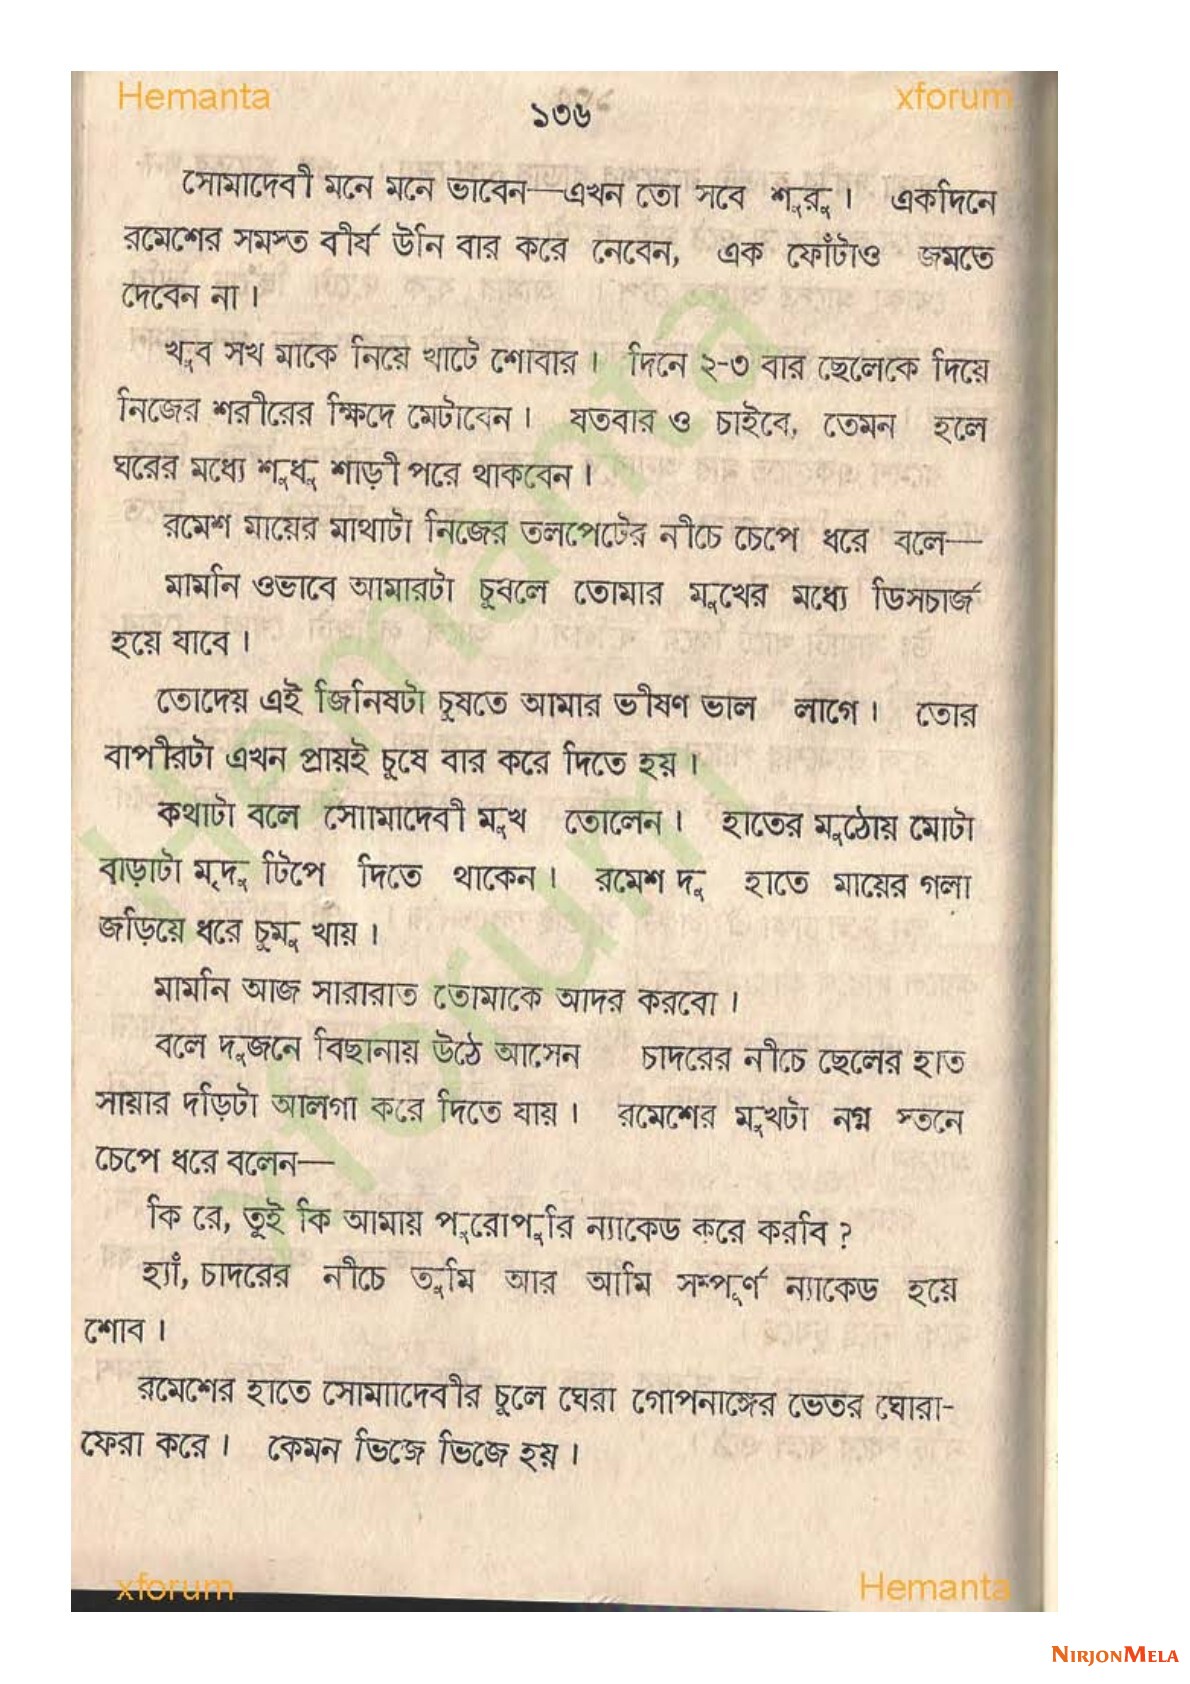 Hemanta xforum
১৩৬
সোমাদেবী মনে মনে ভাবেন—এখন তো সবে শুরু। একদিনে
রমেশের সমস্ত বীর্য উনি বার করে নেবেন, এক ফোঁটাও জমতে
দেবেন না।
খুব সখ মাকে নিয়ে খাটে শোবার। দিনে ২-৩ বার ছেলেকে দিয়ে
নিজের শরীরের ক্ষিদে মেটাবেন। যতবার ও চাইবে, তেমন হলে
ঘরের মধ্যে শুধু শাড়ী পরে থাকবেন।
রমেশ মায়ের মাথাটা নিজের তলপেটের নীচে চেপে ধরে বলে—
মামনি ওভাবে আমারটা চুবলে তোমার মুখের মধ্যে ডিসচার্জ
হয়ে যাবে।
তোদেয় এই জিনিষটা চুষতে আমার ভীষণ ভাল লাগে। তোর
বাপীরটা এখন প্রায়ই চুষে বার করে দিতে হয়।
কথাটা বলে সোামাদেবী মুখ তোলেন। হাতের মুঠোয় মোটা
বাড়াটা মৃদু টিপে দিতে থাকেন। রমেশ দু হাতে মায়ের গলা
জড়িয়ে ধরে চুমু খায়।
মামনি আজ সারারাত তোমাকে আদর করবো।
বলে দুজনে বিছানায় উঠে আসেন চাদরের নীচে ছেলের হাত
সায়ার দড়িটা আলগা করে দিতে যায়। রমেশের মুখটা নগ্ন স্তনে
চেপে ধরে বলেন—
কি রে, তুই কি আমায় পুরোপুরি ন্যাকেড করে করবি?
হ্যাঁ, চাদরের নীচে তুমি আর আমি সম্পূর্ণ ন্যাকেড হয়ে
শোব।
রমেশের হাতে সোমাাদেবীর চুলে ঘেরা গোপনাঙ্গের ভেতর ঘোরা-
ফেরা করে। কেমন ভিজে ভিজে হয়।
xforum Hemanta
NIRJONMELA